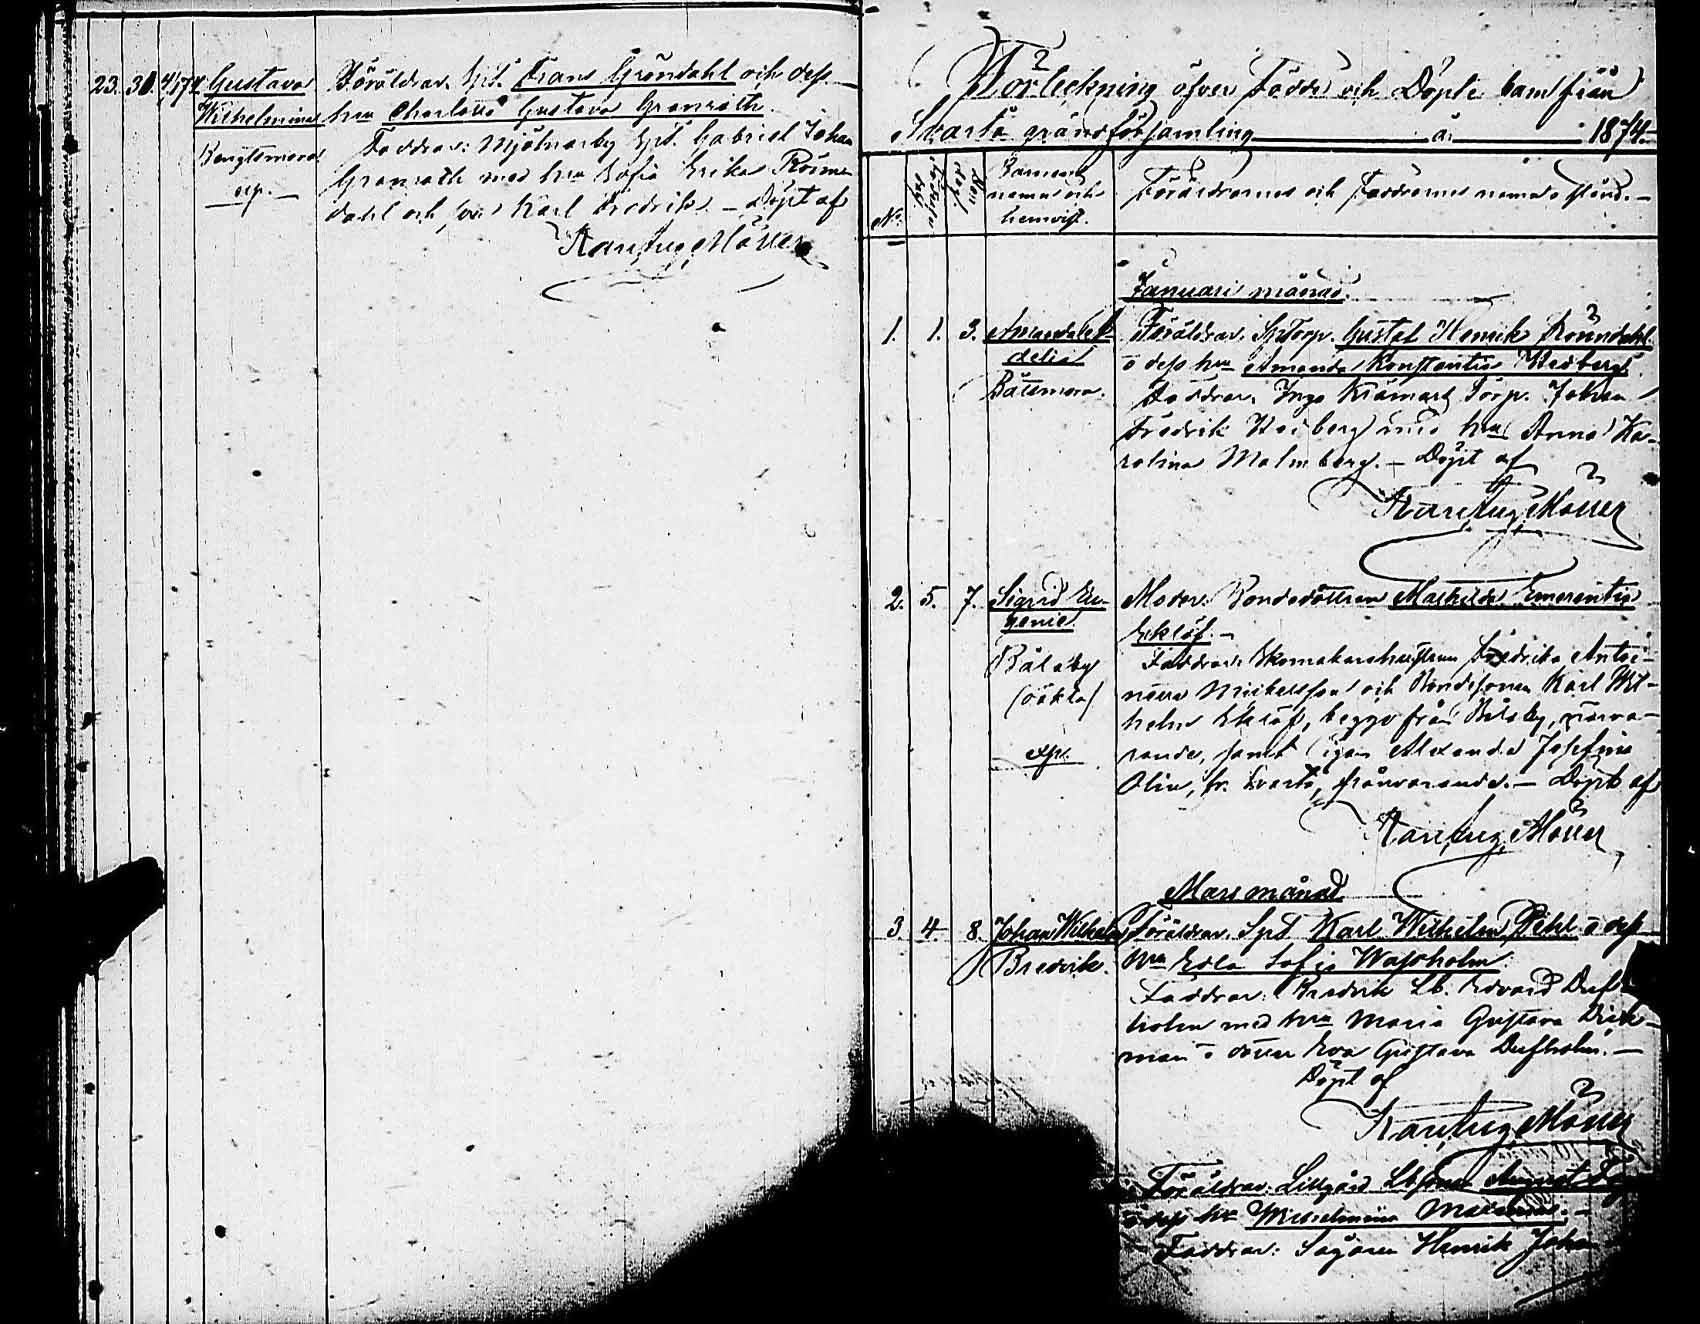 23. 30. 4/1 74. Gustava
Wilhelmina
Bengtsmora
exp.
Föräldrar: Spt. Frans Gröndahl och dess
hru Charlotta Gustava Granroth.
Faddrar: Mjölnarby Spt. Gabriel Johan
Granroth med hru Sofia Erika
dahl och Karl Fredrik. – Döpt af
Karl Aug. Möller
Förteckning öfver Födde och Döpte barn från
Svartå grändförsamling år 1874.
No.
Födelse dag
Döp. dag
Barnens
namn och
hemvist.
Föräldrarnes och Faddrarnes namn o stånd. –
Januari månad.
1. 1. 3. Amanda
delia
Båtsmora.
Föräldrar: Sptorp. Gustaf Henrik
o dess hru Amanda Konstantia Hedberg.
Faddrar: Torp. Johan
Fredrik Hedberg med hru Anna Ka-
rolina Malmberg. – Döpt af
Karl Aug. Möller
2. 5. 7. Sigrid Eu-
genie.
Bålaby
(oäkta)
exp.
Moder: Bondedottren Mathilda Emerentia
Eklöf. –
Faddrar: Skomakarehustrun Fredrika Antoi-
och Bondesonen Karl Wil-
helm Eklöf, begge från närva-
rande, samt pigan Alexandra Josefina
Olin, fr. Svartå, frånvarande. – Döpt af
Karl Aug. Möller
Mars månad
3. 4. 8. Johan Wilhelm
Bredvik.
Föräldrar: Spt Karl Wilhelm Pihl o dess
hru Edla Sofia Wassholm.
Faddrar: Bredvik Lb. Edvard
holm med hru Maria Gustava
man o dotter Eva Gustava
Döpt af
Karl Aug. Möller
Föräldrar: Lillgård August
o dess hru Wilhelmina
Faddrar: Henrik Johan